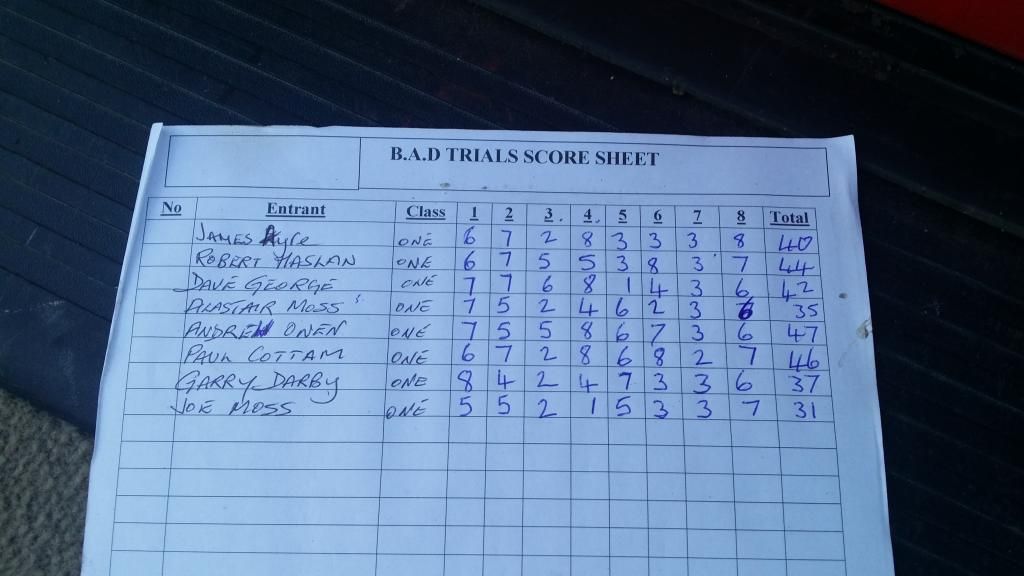 B.A.D TRIALS SCORE SHEET
No Entrant Class 1 2 3. 4. 5 6 7 8 Total
JAMES Ayre ONE 6 7 2 8 3 3 3 8 40
ROBERT HASLAN ONE 6 7 5 5 3 8 3 7 44
DAVE GEORGE ONE 7 7 6 8 1 4 3 6 42
ALASTAIR MOSS ONE 7 5 2 4 6 2 3 6 35
ANDREW OWEN ONE 7 5 5 8 6 7 3 6 47
PAUL COTTAM ONE 6 7 2 8 6 8 2 7 46
GARRY DARBY ONE 8 4 2 4 7 3 3 6 37
JOE MOSS ONE 5 5 2 1 5 3 3 7 31